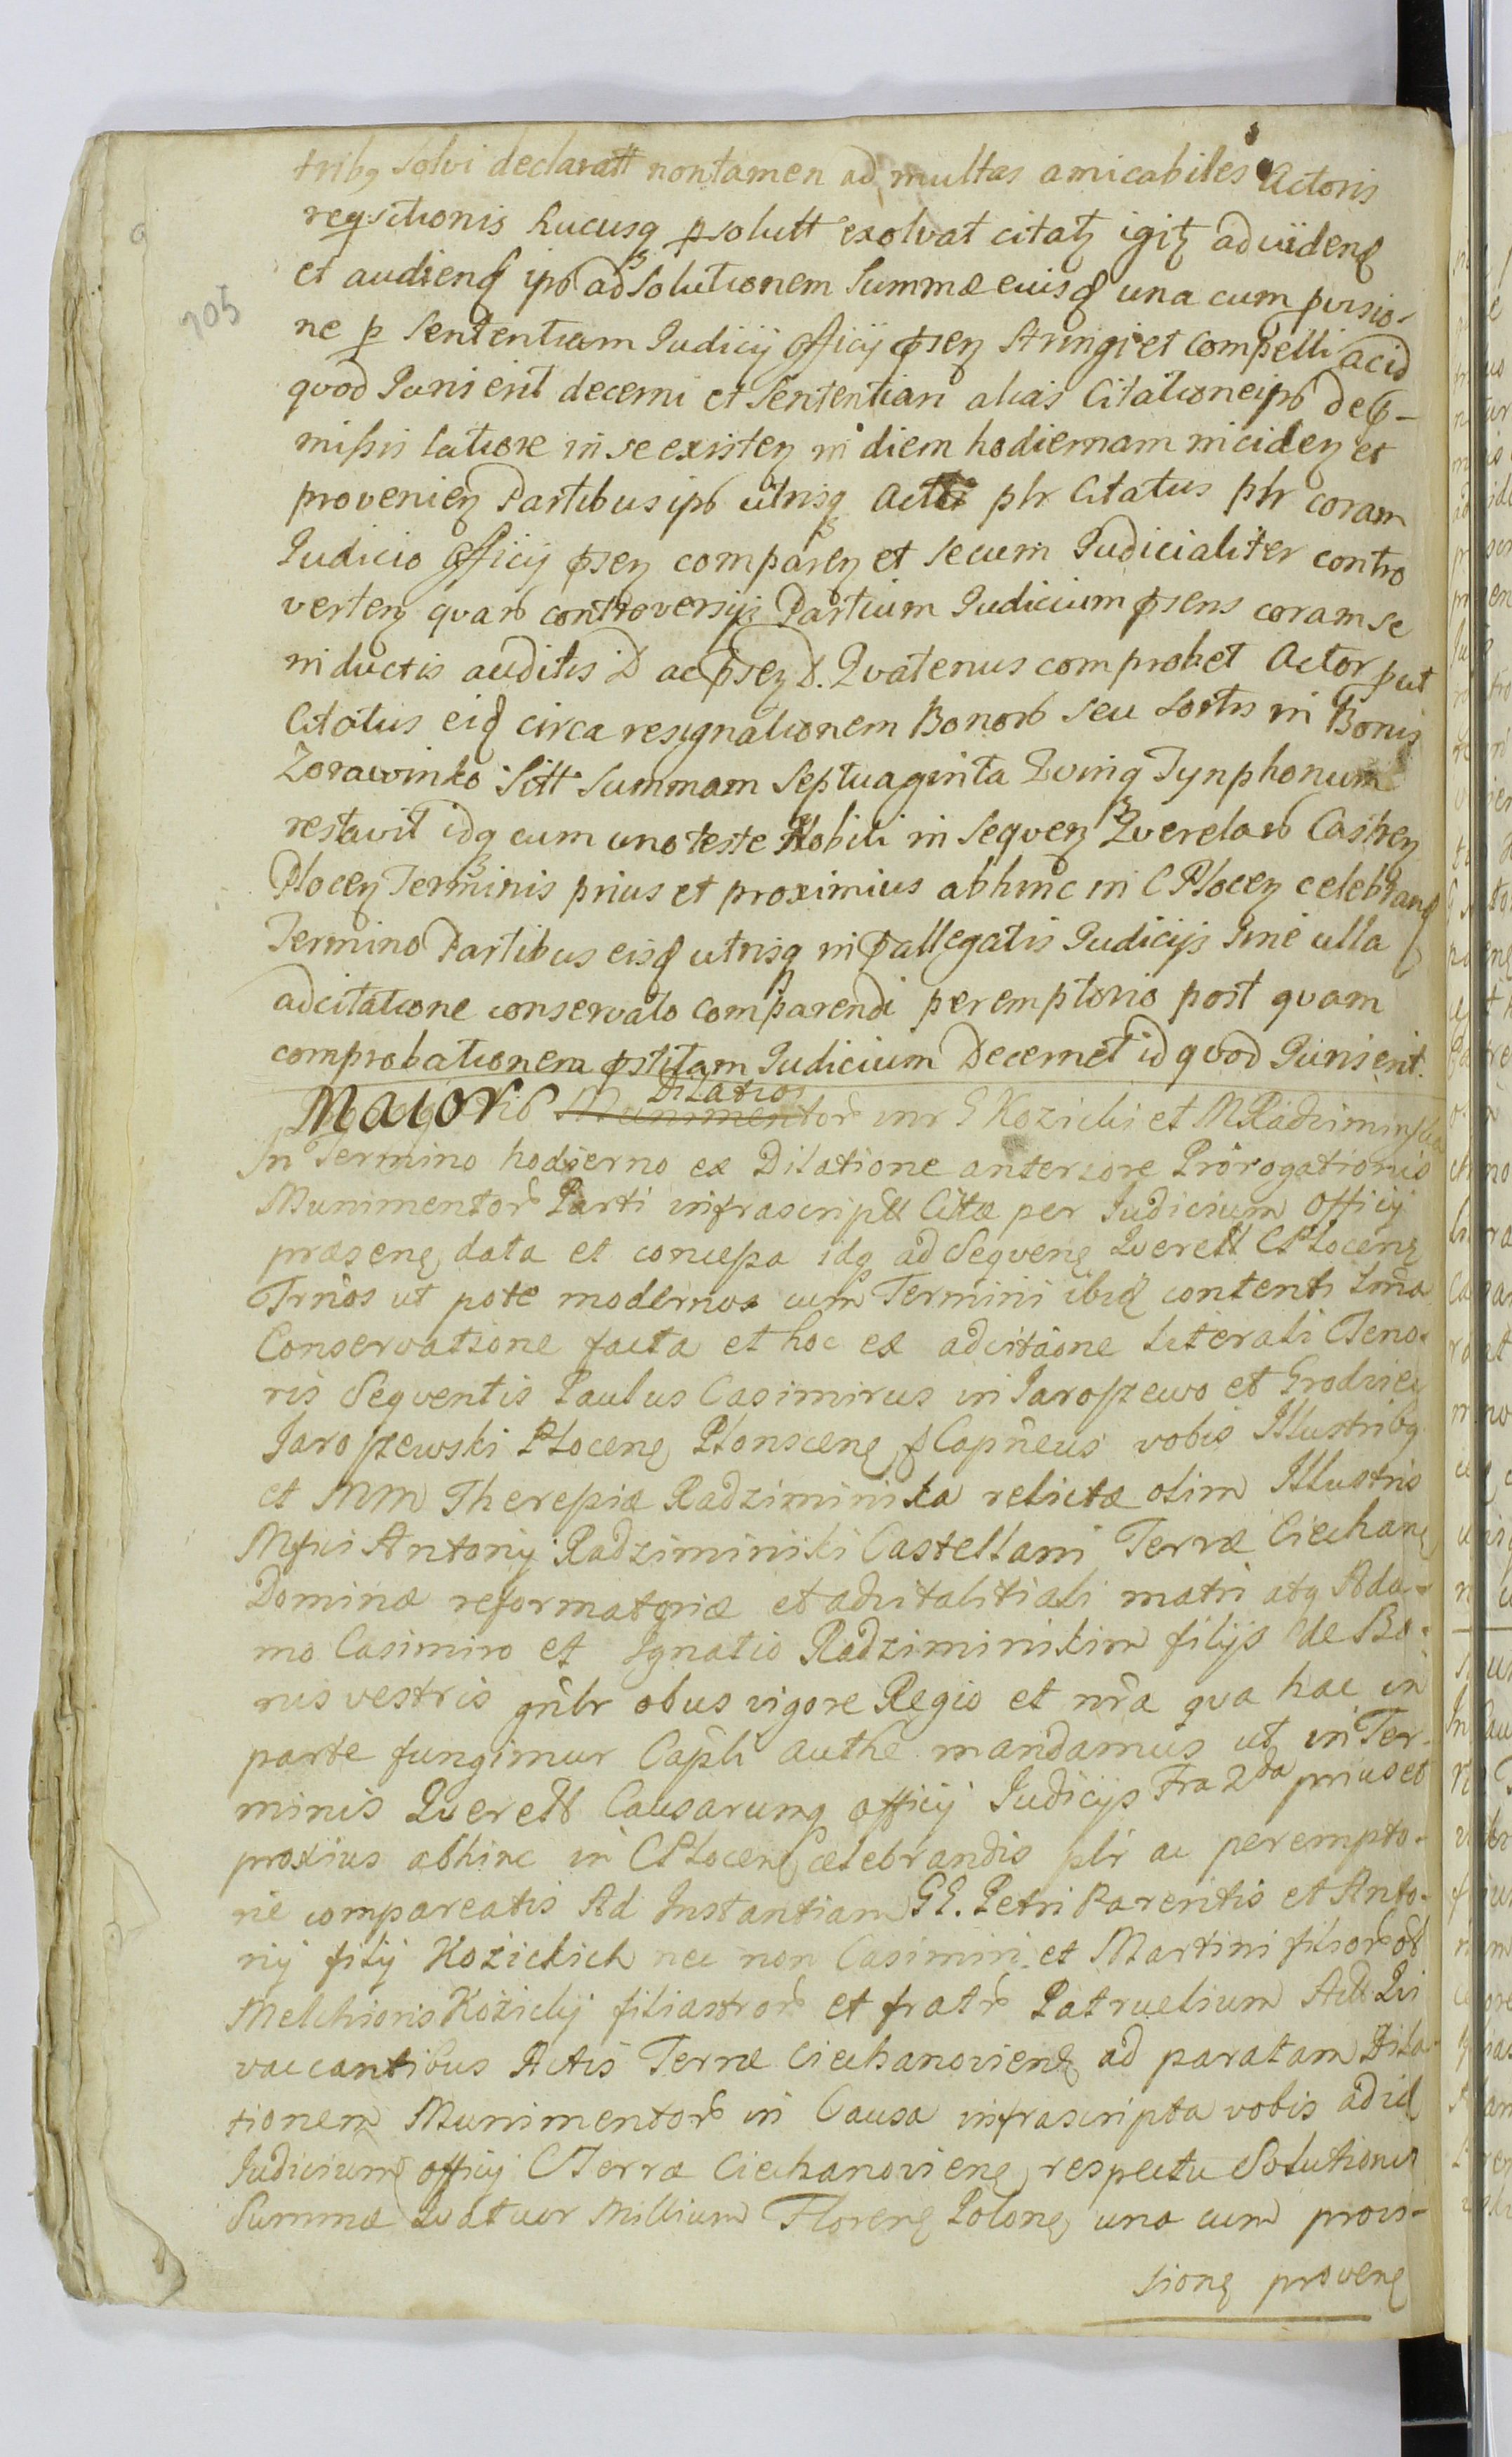 tribq Solvi declaratt non tamen ad multas amicabiles Actoris
reqsitionis hucusq psolutt exolvat citatz igitz ad videnđ
et audienđ ipõ ad Solutionem Summæ eiusđ una cum pvisio-
ne p Sententiam Iudicij Officij psen stringi et compelli acid
quod Juris erit decerni et Sententiari alias Citatione ipõ dep-
missis latiore in se existen in diem hodiernam inciden et
provenien Partibus ipõ utrisq Actor plr Citatus plr coram
Iudicio Officij psen comparen et secum Iudicialiter contro
verten quarõ controversijs Partium Iudicium psens coram se
inductis auditis D ac psen D. Quatenus comprobet Actor put
Citatus eiđ circa resignationem Bonorõ seu Sortis in Bonis
Zorawinko Sitt Summam Septuaginta Quinq Tynphonum
restavit idq cum uno teste Nobili in Sequen Querelarõ Castren
Plocen Terminis prius et proximius abhinc in C Plocen celebranđ
Termino Partibus eisđ utrisq in pallegatis Iudicijs sine ulla
adcitatione conservato comparendi peremptorio post quam
comprobationem pstitam Iudicium Decernet id quod Juris erit.
Maior Dilatio Munimentorõ inr G Kozicki et M Radziminska
In Termino hodierno ex Dilatione anteriore Prorogationis
Munimentorõ Parti infrascriptt Cittæ per Iudicium Officij
præsenę data et concessa idq ad Sequenę Querett C Plocenę
Trños ut pote modernos cum Termini ibiđ contenti
Conservatione facta et hoc ex adcitãone literali Teno-
ris Sequentis Paulus Casimirus in Jaroszewo et Grodziec
Jaroszewski Plocenę Plonscenę Capñeus vobis Illustribq
et MM Theressiæ Radziminska relictæ olim Illustris
Mfici Antonij Radziminski Castellani Terræ Ciechanę
Dominæ reformatoriæ et advitalitiali matri atq Ada-
mo Casimiro et Ignatio Radziminskim filijs de Bo-
nis vestris gñlr obus vigore Regio et nrã qua hac in
parte fungimur Capli authe mandamus ut in Ter-
minis Querett Causarumq officij Iudicijs Fra 2da prius et
proxius abhinc in C Plocenę celebrandis plr ac perempto-
rie compareatis Ad Instantiam GG. Petri Parentis et Anto-
nij filij Kozickich nec non Casimiri et Martini filiorõ oł
Melchioris Kozickij filiastrorõ et fratrõ Patruelium Qui
vaccantibus Actis Terræ Ciechanovienę ad paratam Dila-
tionem Munimentorõ in Causa infrascripta vobis ad id
Iudicium officij C Terræ Ciechanovienę respectu Solutionis
Summæ Quatuor Millium Florenę Polonę una cum provi-
sionę provenę
705